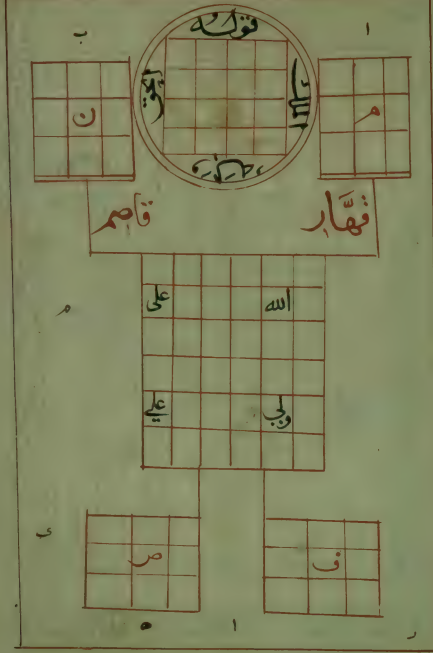 ا ب
قوله
الحق
م ن
قهَّار قاصم
الله على
م
ولي علي
ف ص
ر ا ه